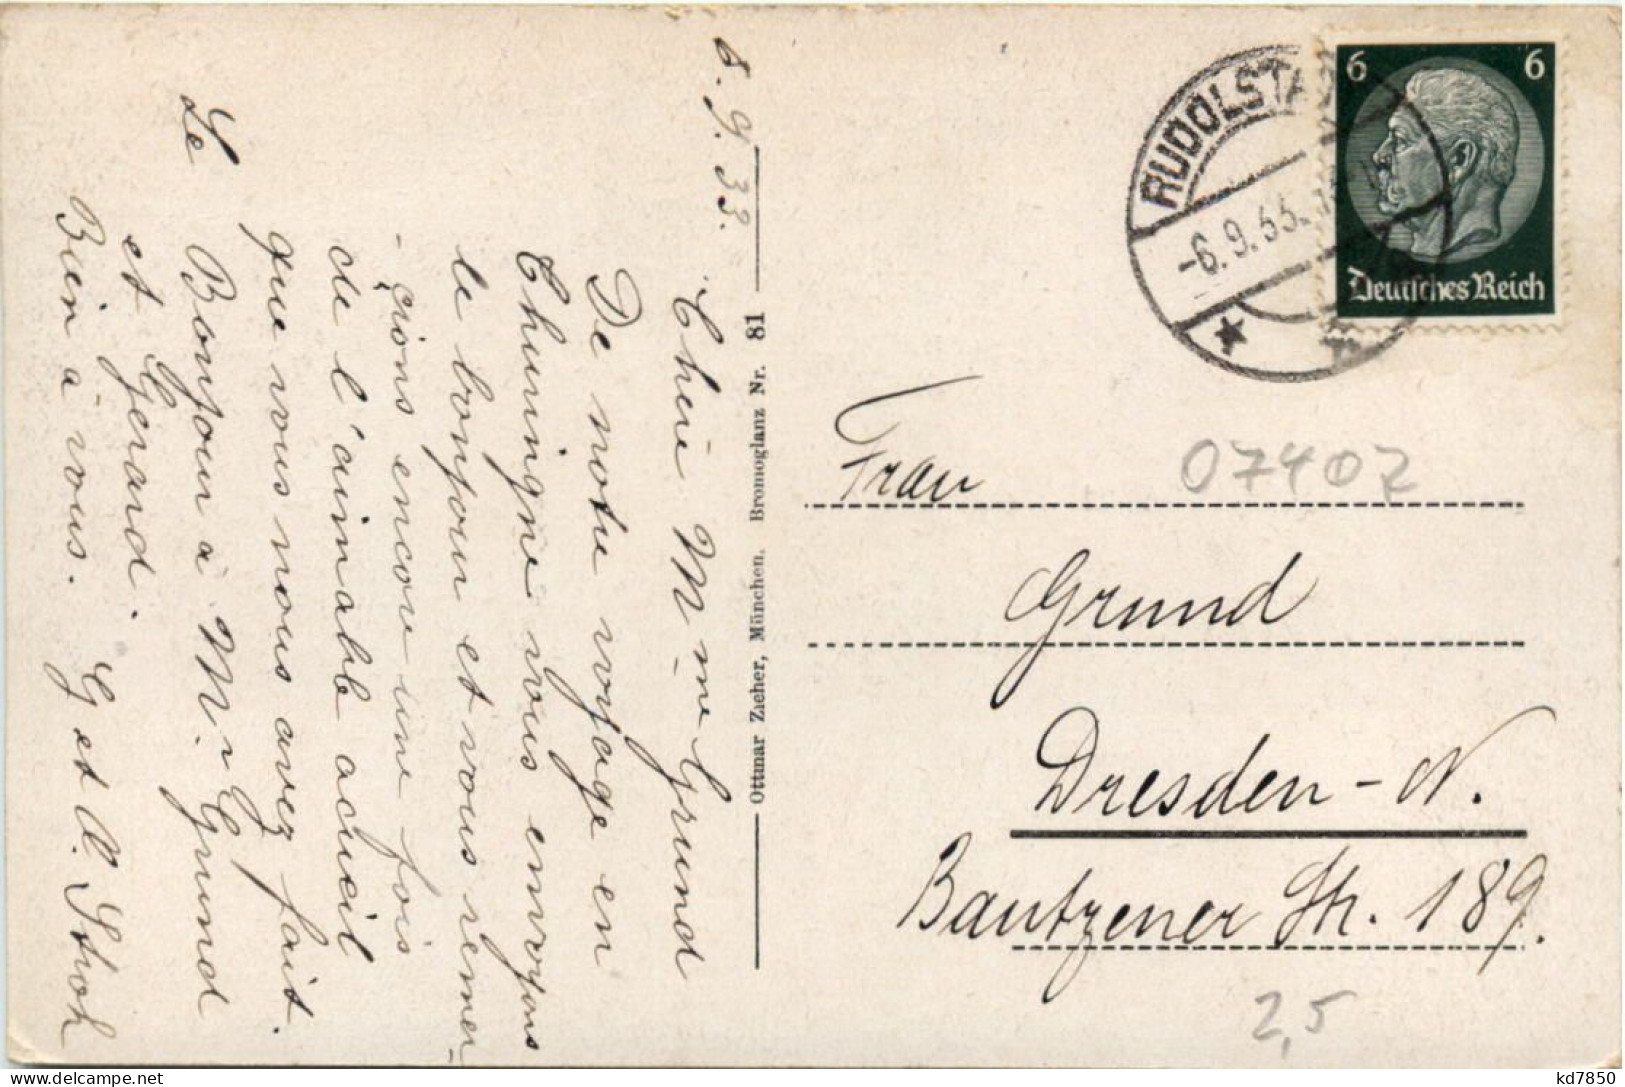 8.9.33.
Chère M-me Grund
De notre voyage en
Thuringne vous envoyons
le bonjour et vous remer-
-çions encore une fois
de l'aimable acueil
que vous nous avez fait.
Le Bonjour à M. r Grund
et Gerard.
Bien à vous. G et A. Stroh
Ottmar Zieher, München. Bromoglanz Nr. 81
RUDOLSTA
-6.9.33.
6 6
Deutsches Reich
07402
Frau
Grund
Dresden-N.
Bautzener Str. 189.
2,5
kd7850